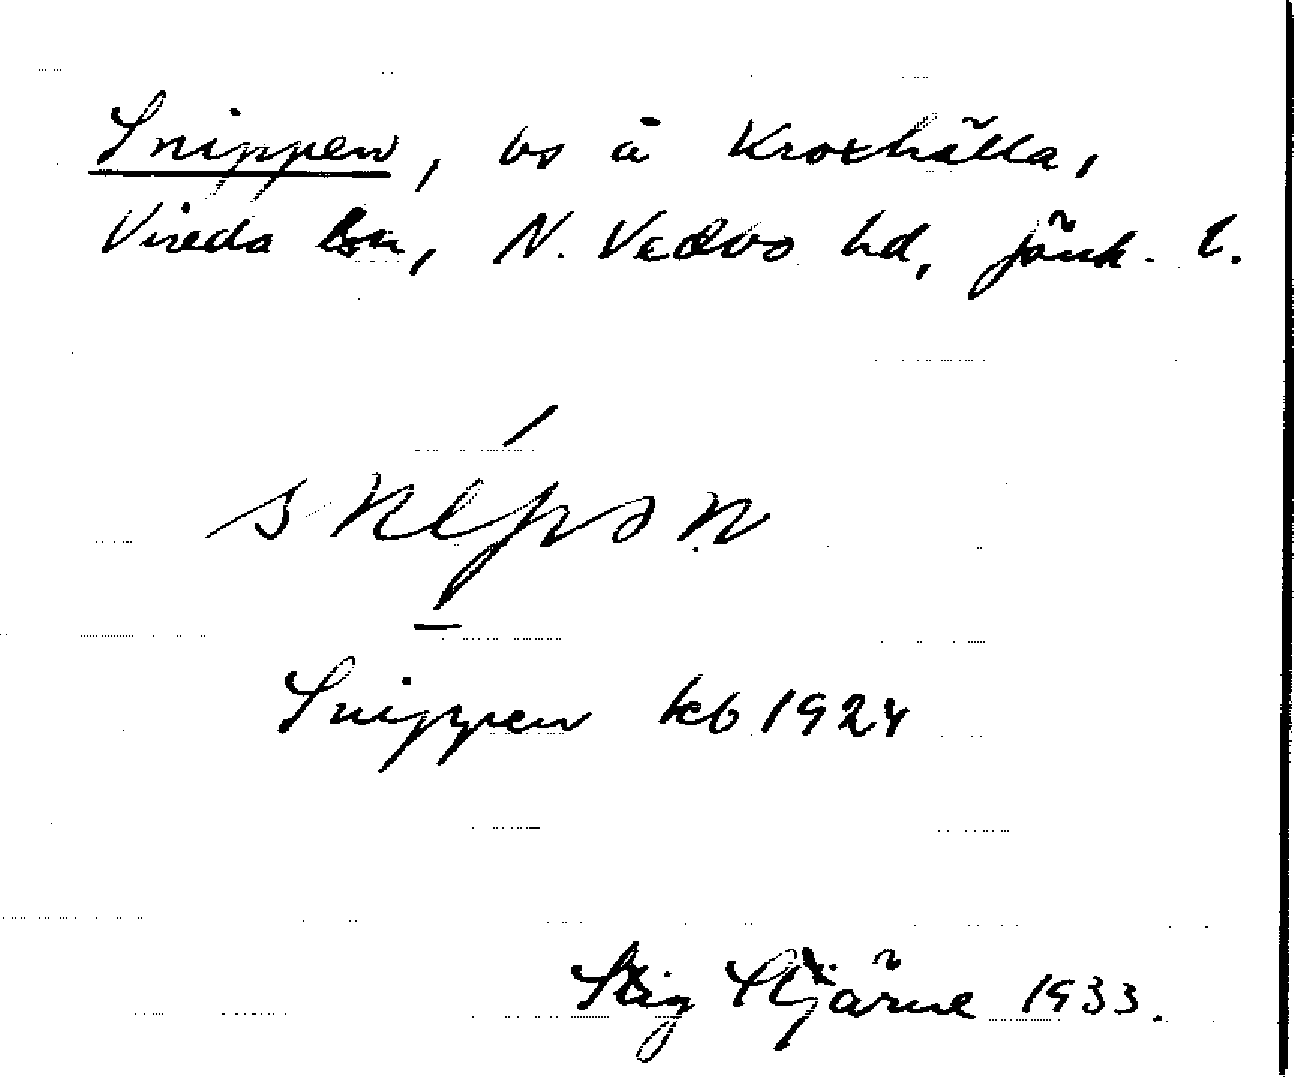 Snippen, bs å Kroxhälla,
Vireda sn, N. Vedbo hd, Jönk. l.
snip̠ən
Snippen kb 1924
Stig Stjärne 1933.